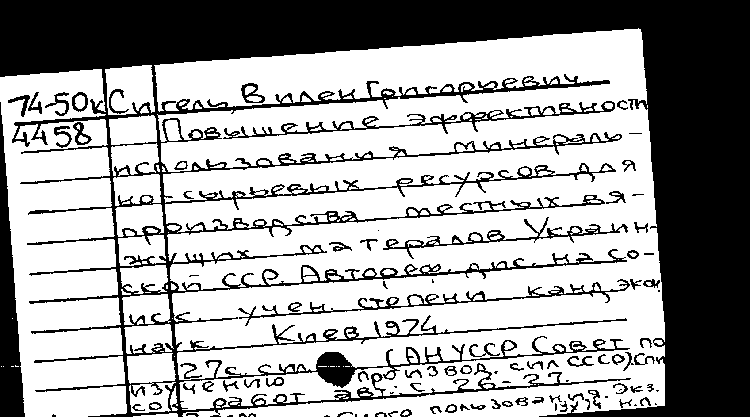 74-50к Сигель, Вилен Григорьевич
4458 Повышение эффективности
использования минераль-
но-сырьевых ресурсов для
производства местных вя-
жущих матералов Украин-
ской ССР. Автореф. дис. на со-
иск. учен. степени канд. экон.
наук. Киев, 1974.
27с. с ил. (АН УССР Совет по
изучению производ. сил СССР). Спи
сок работ авт.: с. 26-27.
пользования. Экз.